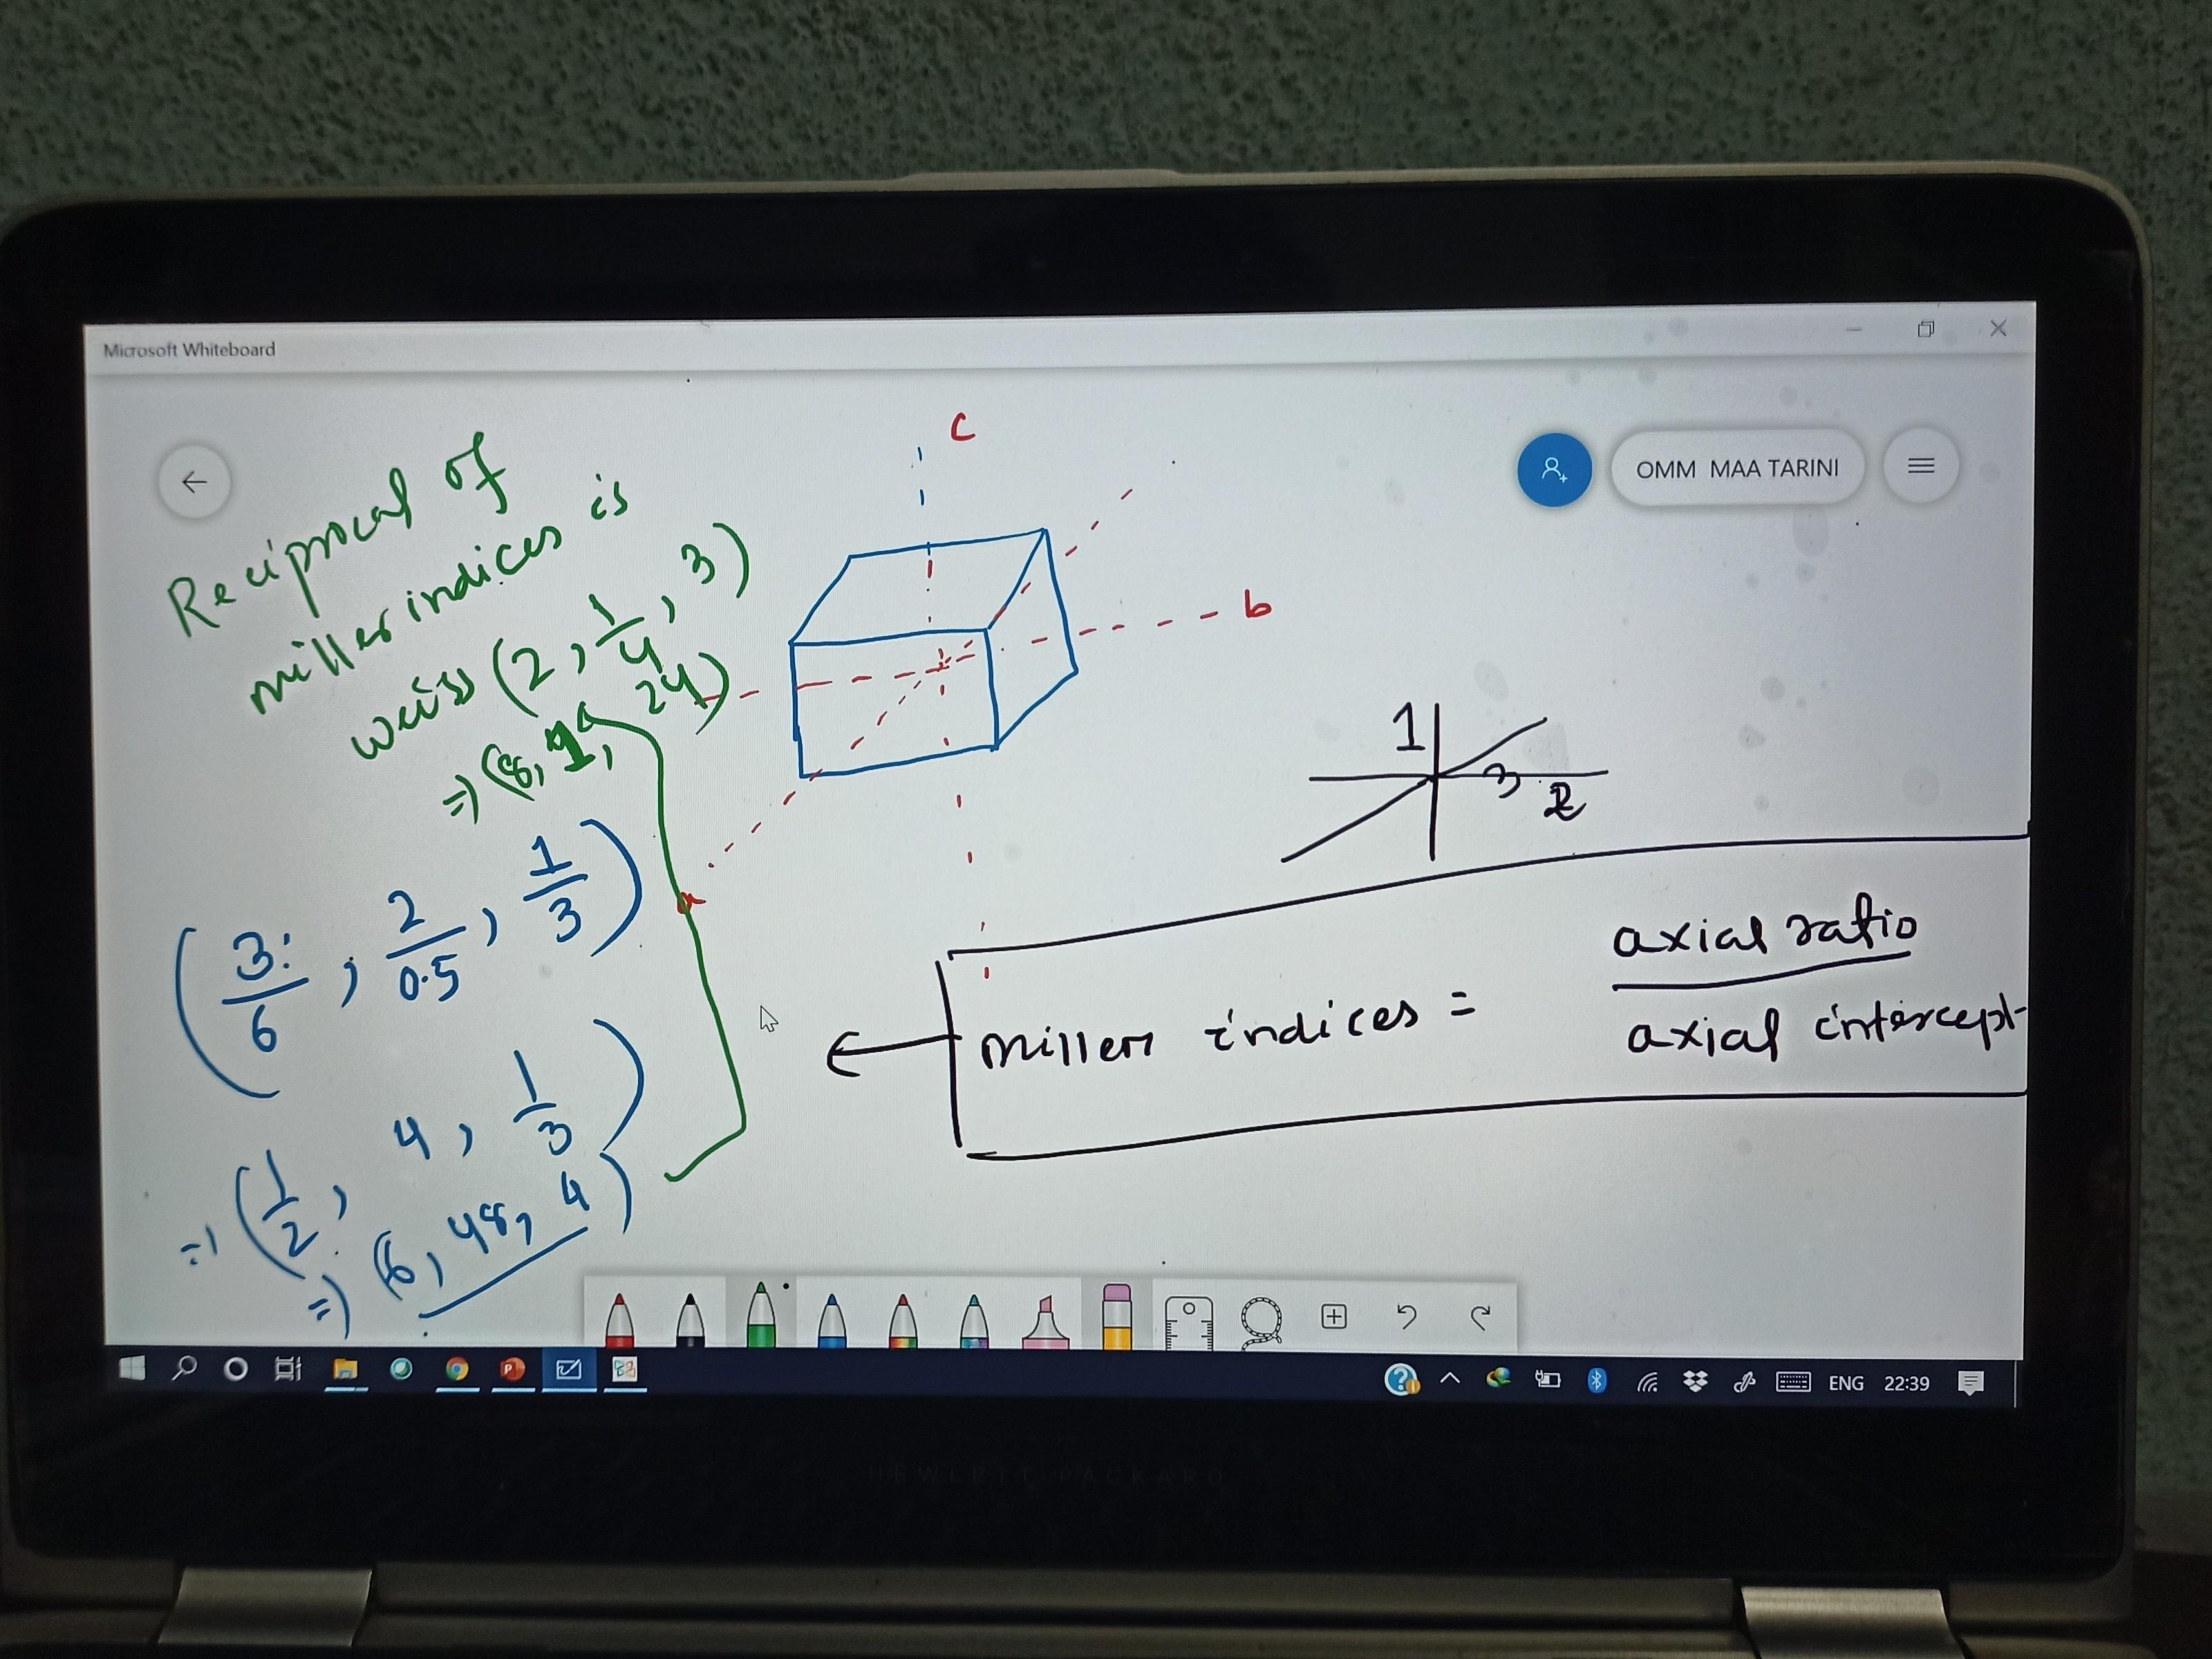 Microsoft Whiteboard
OMM MAA TARINI
Reciprocal of
miller indices is
weiss (2, 1/4, 3)
⇒ (8, 1, 24)
(3:/6, 2/0.5, 1/3)
⇒ (1/2, 4, 1/3)
⇒ (6, 48, 4)
c
b
a
1
3
2
miller indices = axial ratio / axial intercept
ENG 22:39
HEWLETT PACKARD